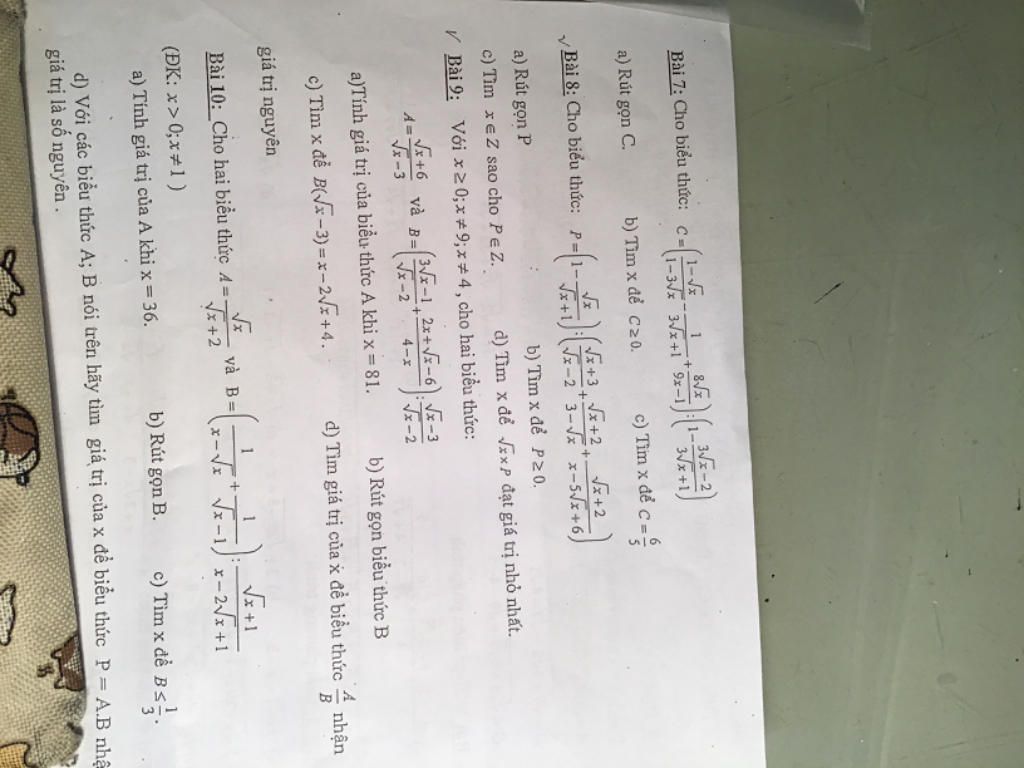 Bài 7: Cho biểu thức: C = ((1-√x)/(1-3√x) - 1/(3√x+1) + 8√x/(9x-1)) : (1 - (3√x-2)/(3√x+1))
a) Rút gọn C. b) Tìm x để C ≥ 0. c) Tìm x để C = 6/5
√ Bài 8: Cho biểu thức: P = (1 - √x/(√x+1)) : ((√x+3)/(√x-2) + (√x+2)/(3-√x) + (√x+2)/(x-5√x+6))
a) Rút gọn P b) Tìm x để P ≥ 0.
c) Tìm x ∈ Z sao cho P ∈ Z. d) Tìm x để √x×P đạt giá trị nhỏ nhất.
√ Bài 9: Với x ≥ 0; x ≠ 9; x ≠ 4, cho hai biểu thức:
A = (√x+6)/(√x-3) và B = ((3√x-1)/(√x-2) + (2x+√x-6)/(4-x)) : (√x-3)/(√x-2)
a)Tính giá trị của biểu thức A khi x = 81. b) Rút gọn biểu thức B
c) Tìm x để B(√x-3) = x-2√x+4. d) Tìm giá trị của x để biểu thức A/B nhận
giá trị nguyên
Bài 10: Cho hai biểu thức A = √x/(√x+2) và B = (1/(x-√x) + 1/(√x-1)) : (√x+1)/(x-2√x+1)
(ĐK: x > 0; x ≠ 1 )
a) Tính giá trị của A khi x = 36. b) Rút gọn B. c) Tìm x để B ≤ 1/3.
d) Với các biểu thức A, B nói trên hãy tìm giá trị của x để biểu thức P = A.B
giá trị là số nguyên .